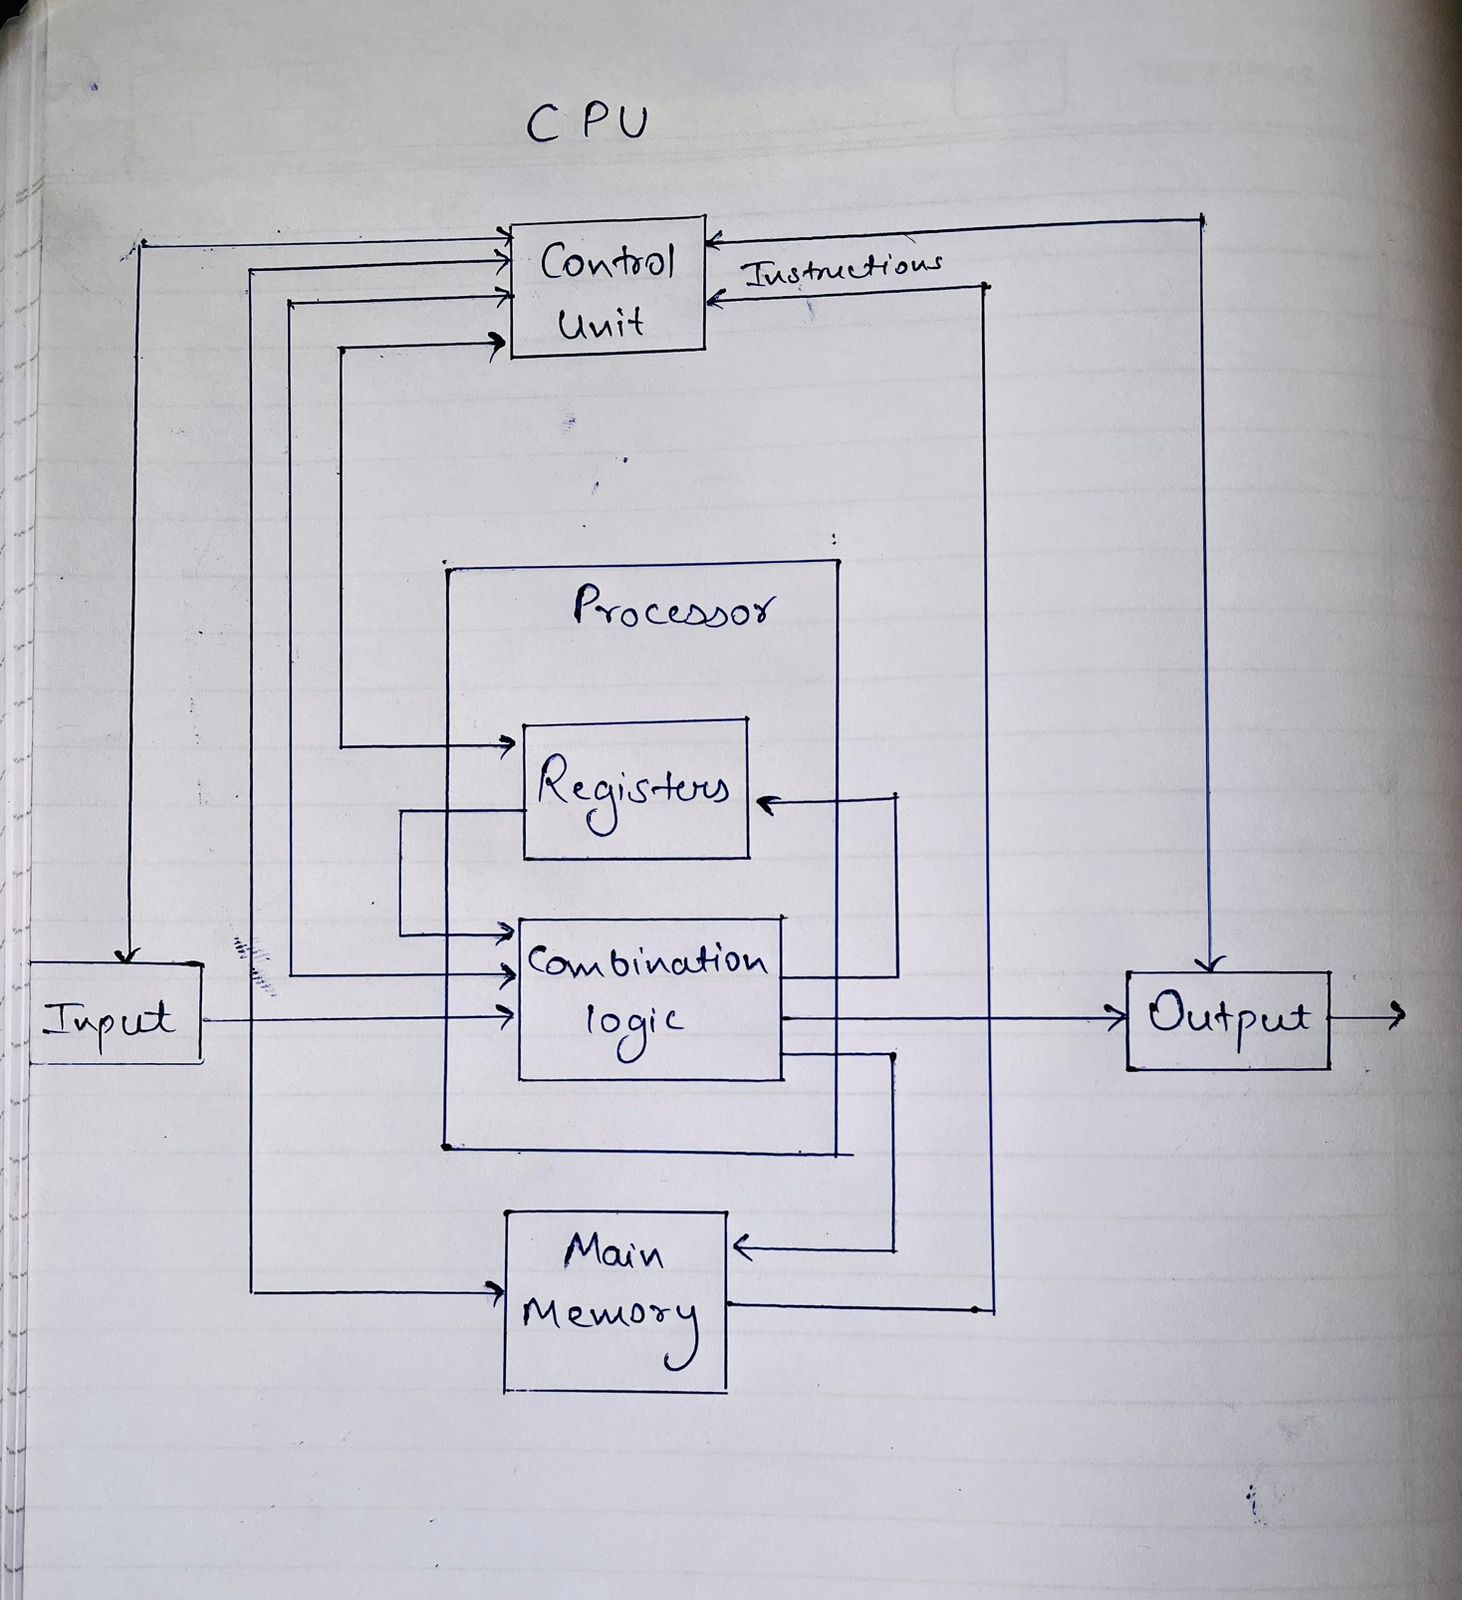 CPU
Control
Unit
Instructions
Processor
Registers
Combination
logic
Input
Output
Main
Memory